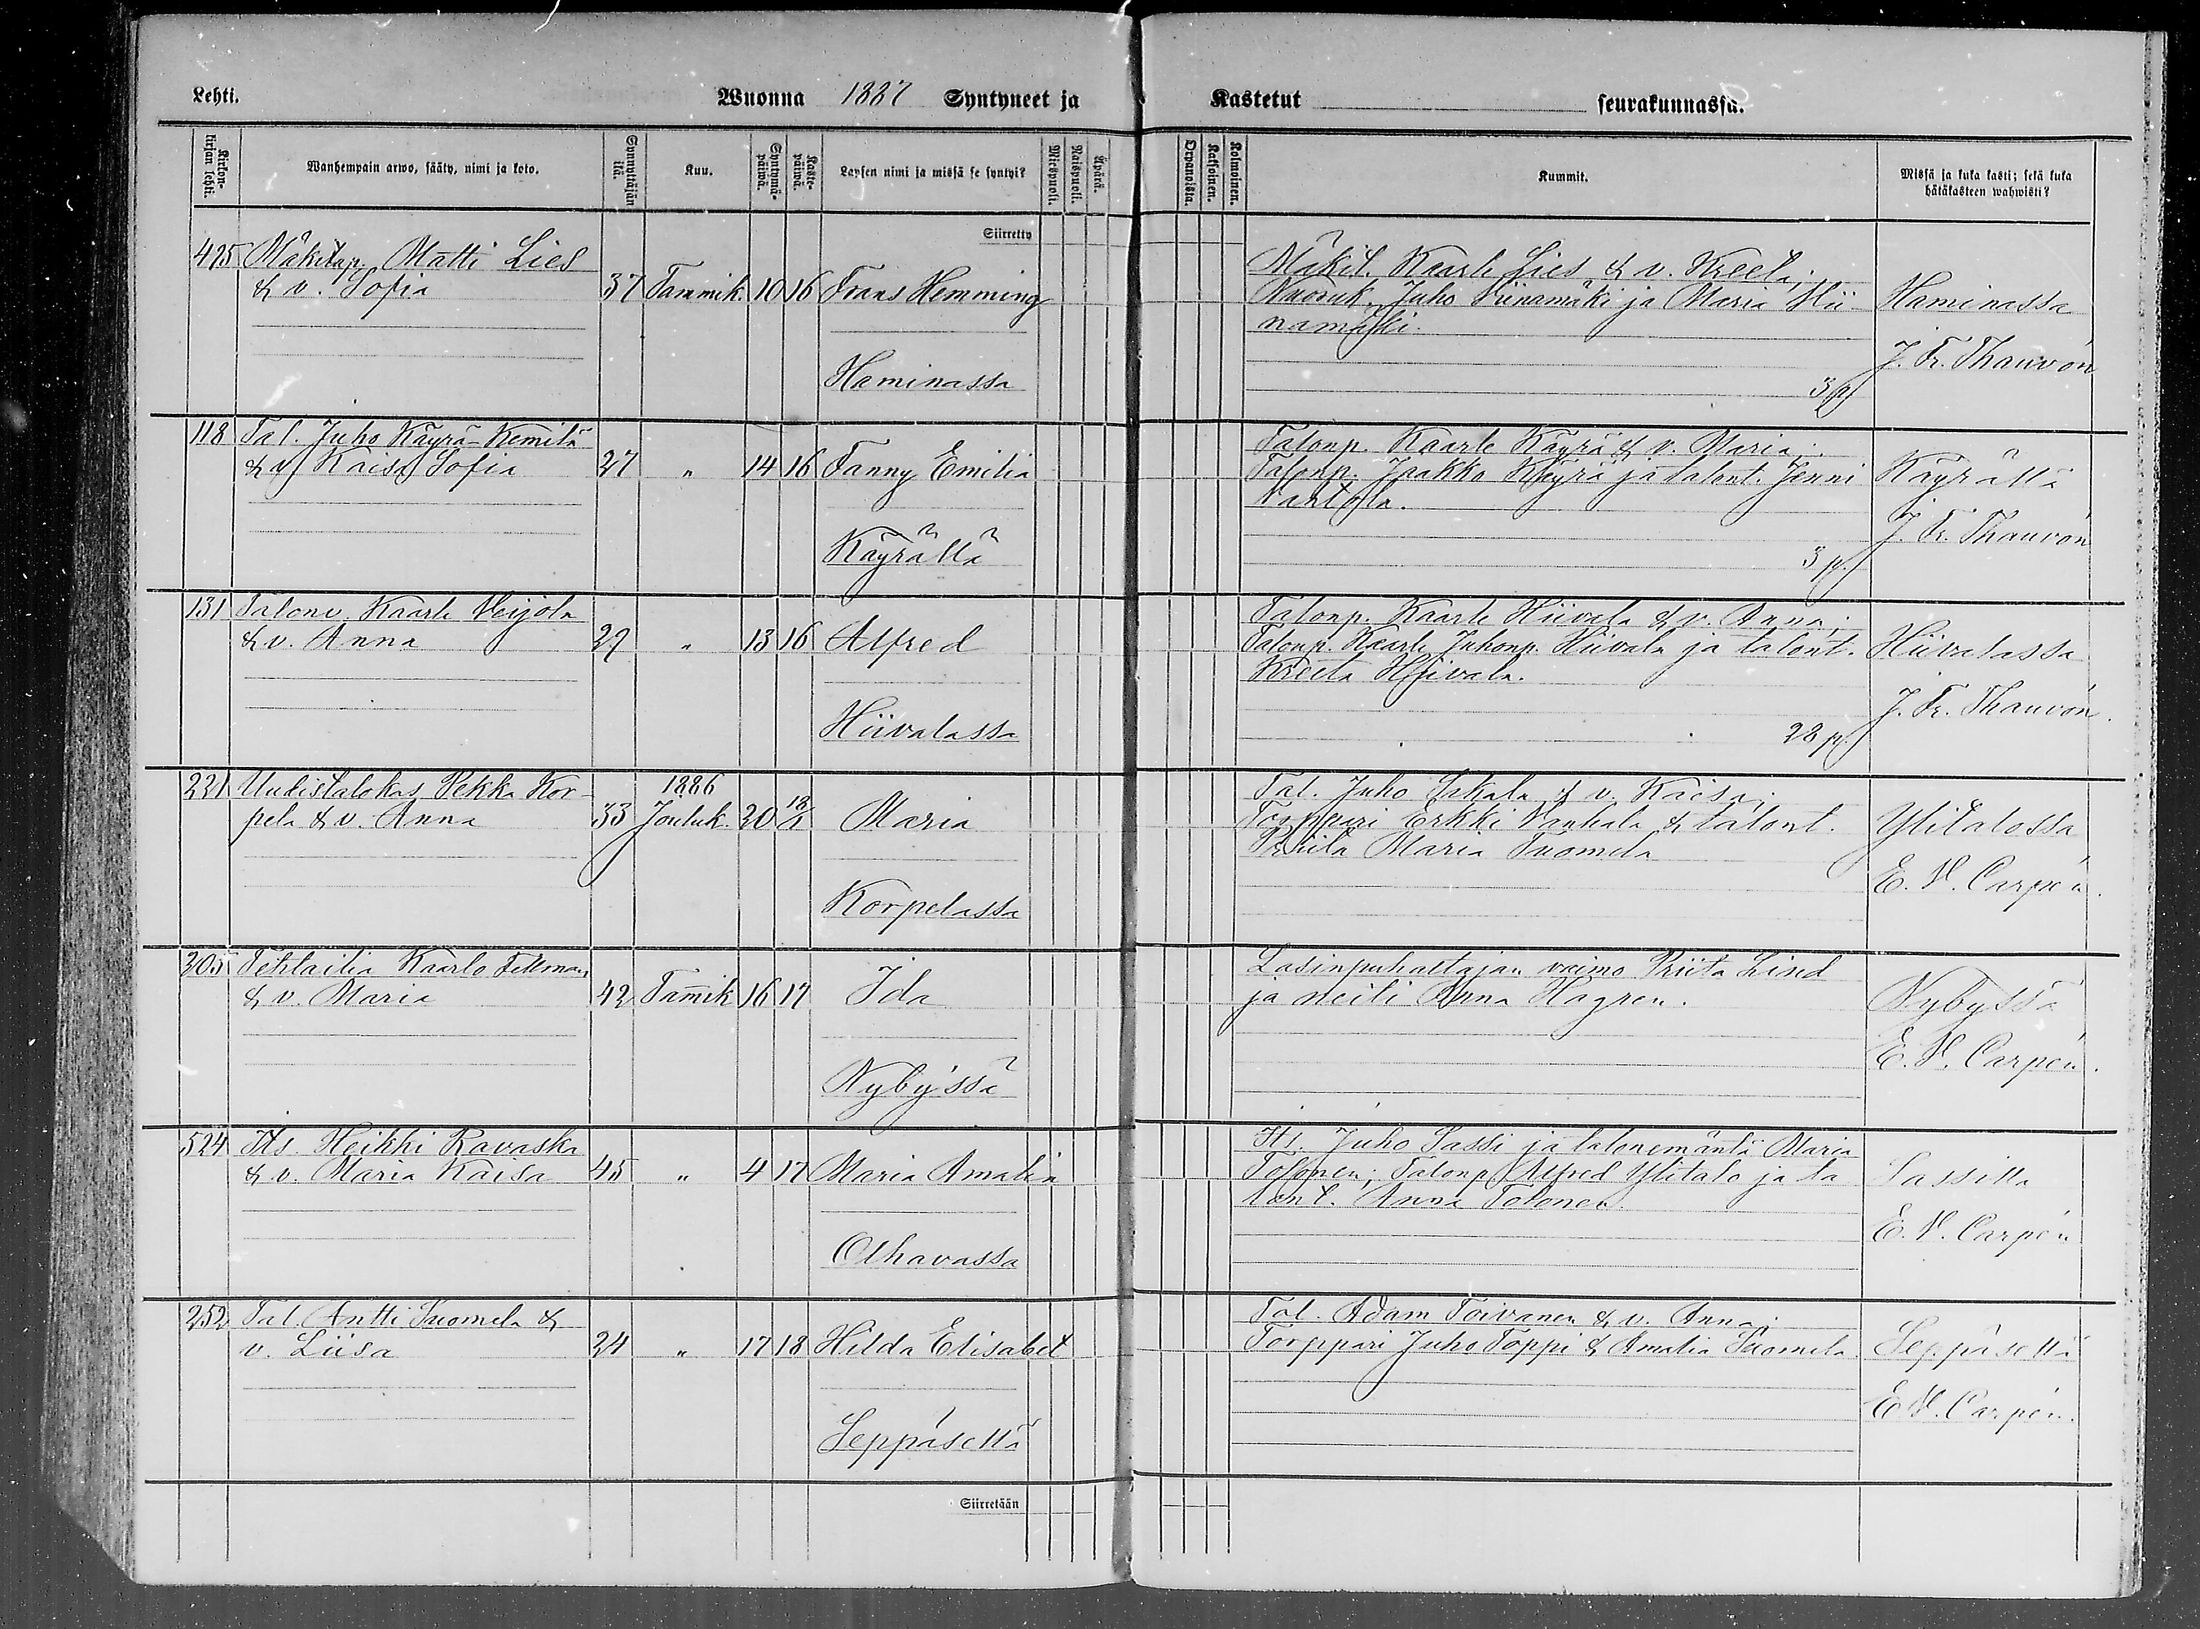 Lehti.
Wuonna 1887 Syntyneet ja
Kastetut seurakunnassa.
Kirkonkirjan lehti.
Wanhempain arwo, sääty, nimi ja koto.
Synnyttäjän ikä.
Kuu.
Syntymäpäivä.
Kastepäivä.
Lapsen nimi ja missä se syntyi?
Miespuoli.
Naispuoli.
Äpärä.
Orpanoista.
Kaksoinen.
Kolmoinen.
Kummit.
Missä ja kuka kasti; sekä kuka
hätäkasteen wahwisti?
Siirretty
495 Mäkitap. Matti Lies
& v. Sofia 37 Tammik. 10 16 Frans Hemming
Haminassa
Mäkit. Kaarle Lies & v. Kreeta;
Nuoruk. Juho Hiinamäki ja Maria Hii-
namäki.
3 p
Haminassa
J. Fr. Thauvón
118 Tal. Juho Käyrä-Kemilä
& v. Kaisa Sofia 27 " 14 16 Fanny Emilia
Käyrällä
Talonp. Kaarle Käyrä & v. Maria;
Talonp. Jaakko Käyrä ja talont. Jenni
Vahtola.
3 p.
Käyrällä
J. Fr. Thauvón
131 Talonv. Kaarle Veijola
& v. Anna 29 " 13 16 Alfred
Hiivalassa
Talonp. Kaarle Hiivala & v. Anna;
Talonp. Kaarle Juhonp. Hiivala ja talont.
Kreeta Hiivala.
28 p.
Hiivalassa
J. Fr. Thauvón.
221 Uudistalokas Pekka Kor-
pela & v. Anna 33 1886 Jouluk. 20 18/1 Maria
Korpelassa
Tal. Juho Iskala & v. Kaisa;
Torppari Erkki Vanhala & talont.
Priita Maria Tuomela
Ylitalossa
E. V. Carpén.
305 Tehtailia Kaarlo Fellman
& v. Maria 42 Tam̄ik 16 17 Ida
Nyby'ssä
Lasinpuhaltajan vaimo Priita Lind
ja neiti Anna Hagren.
Nybyssä
E. V. Carpén.
524 Its. Heikki Ravaska
& v. Maria Kaisa 45 " 4 17 Maria Amalia
Olhavassa
Its. Juho Sassi ja talonemäntä Maria
Tolonen; Talonp. Alfred Ylitalo ja ta
lont. Anna Tolonen.
Sassilla
E. V. Carpén
252 Tal. Antti Tuomela &
v. Liisa 24 " 17 18 Hilda Elisabet
Seppäsellä
Tal. Adam Toivanen & v. Anna;
Torppari Juho Toppi & Amalia Tuomela
Seppäsellä
E V. Carpén.
Siirretään